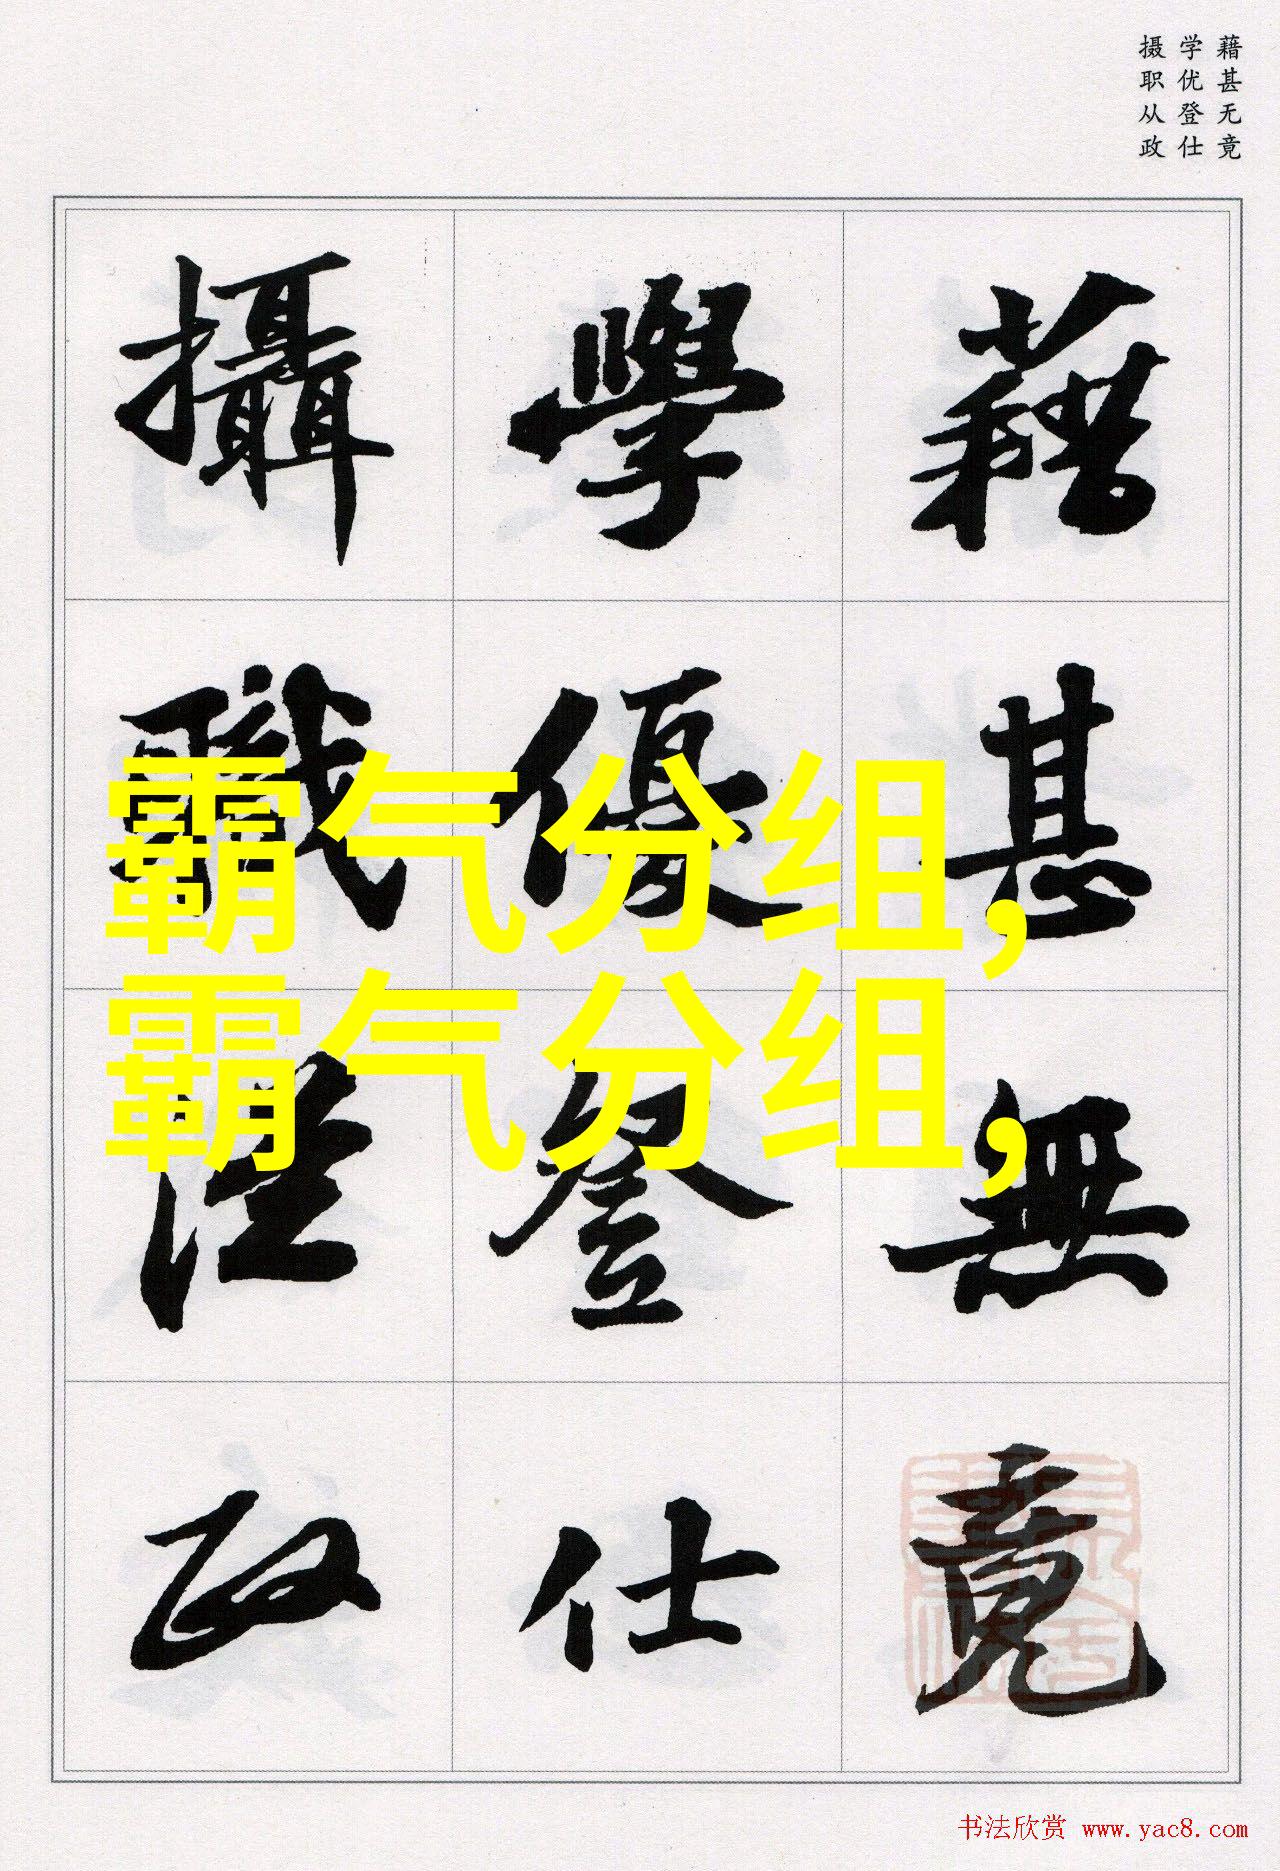 藉甚无竟
学优登仕
摄职从政
藉甚無竟
學優登仕
攝職從政
霸气分组,
霸气分组,
书法欣赏 www.yac8.com